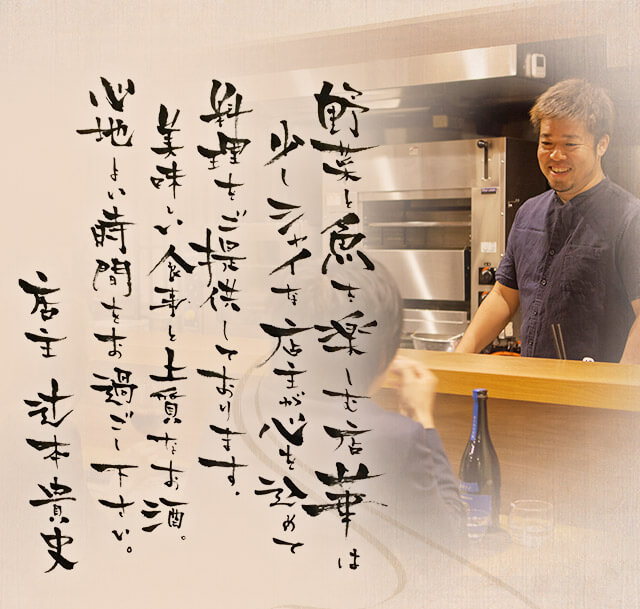 野菜と魚を楽しむ店華は
少しシャイな店主が心を込めて
料理をご提供しております。
美味しい食事と上質なお酒。
心地よい時間をお過ごし下さい。
店主 辻本貴史